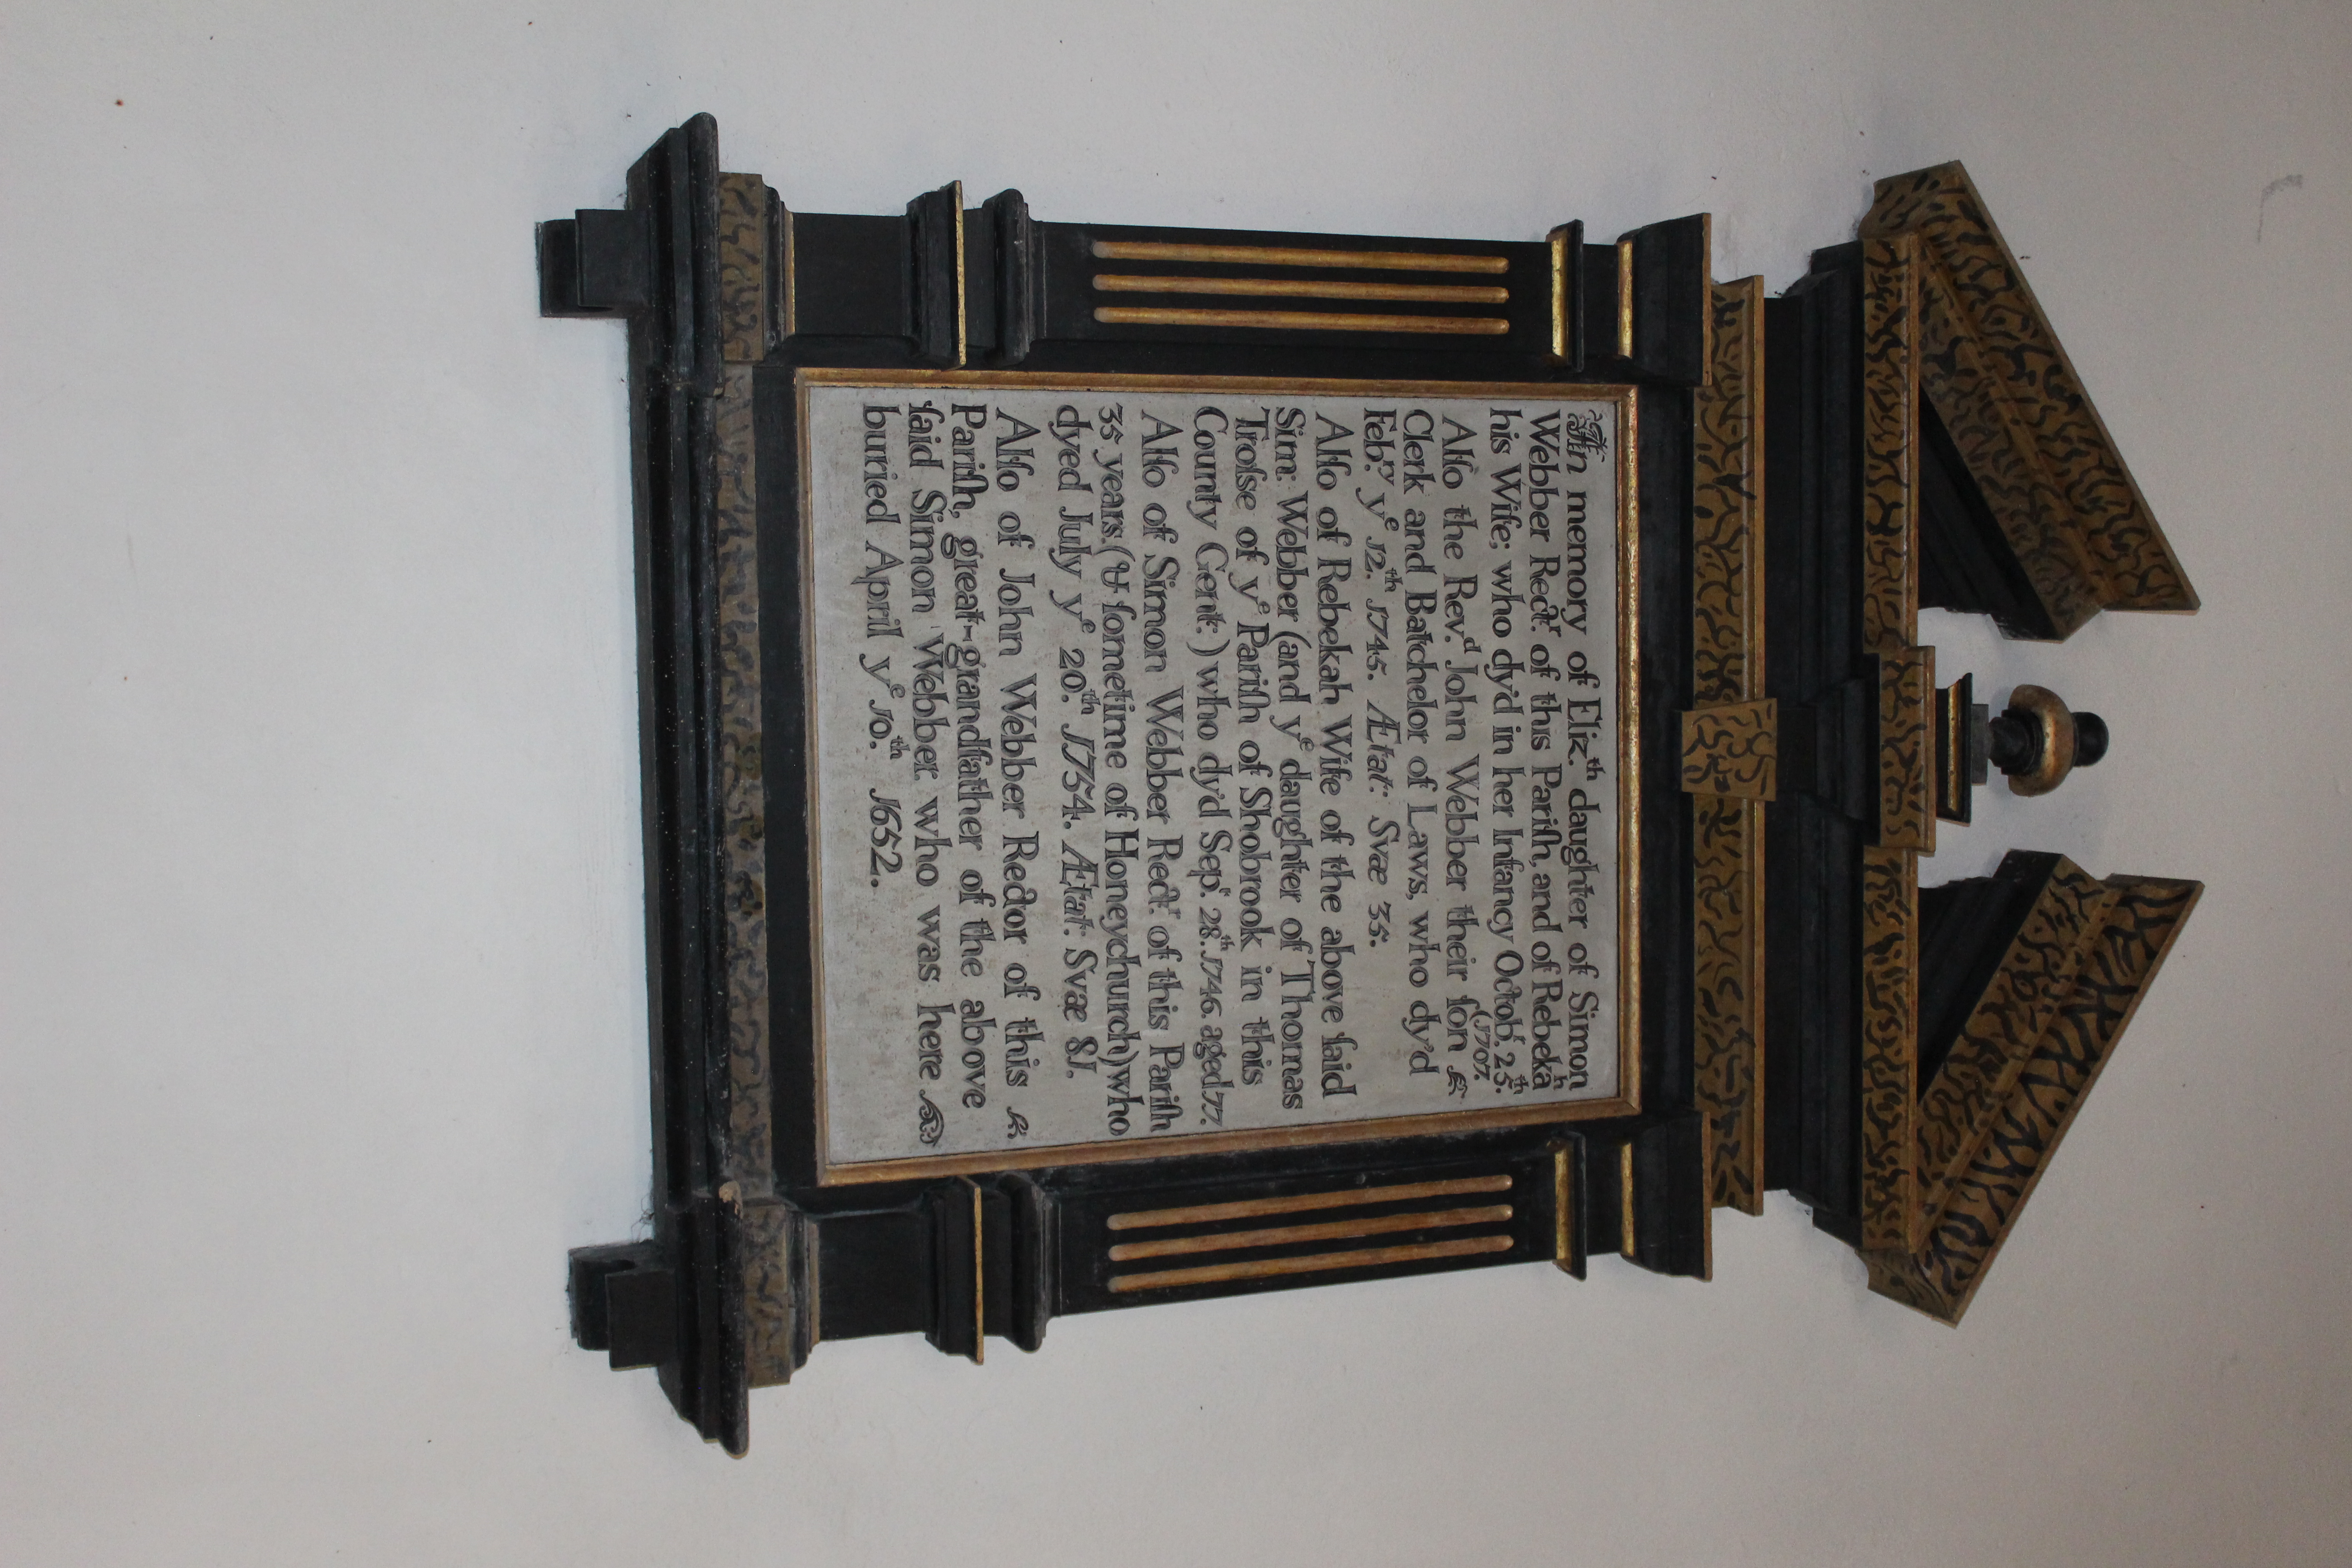 In memory of Eliz.th daughter of Simon
Webber Rect.r of this Pariſh, and of Rebekah
his Wife; who dy'd in her Infancy Octob.r 25.th
(1707.
Alſo the Rev.d John Webber their ſon
Clerk and Batchelor of Laws, who dy'd
Feb.ry ye 12.th 1745. Ætat: Svæ 35.
Alſo of Rebekah Wife of the above ſaid
Sim: Webber (and ye daughter of Thomas
Troſse of ye Pariſh of Shobrook in this
County Gent.) who dy'd Sep.t 28.th 1746. aged 77.
Alſo of Simon Webber Rect.r of this Pariſh
35 years.(& ſometime of Honeychurch) who
dyed July ye 20.th 1754. Ætat: Svæ 81.
Alſo of John Webber Rector of this
Pariſh, great-grandfather of the above
ſaid Simon Webber. who was here
buried April ye 10.th 1652.